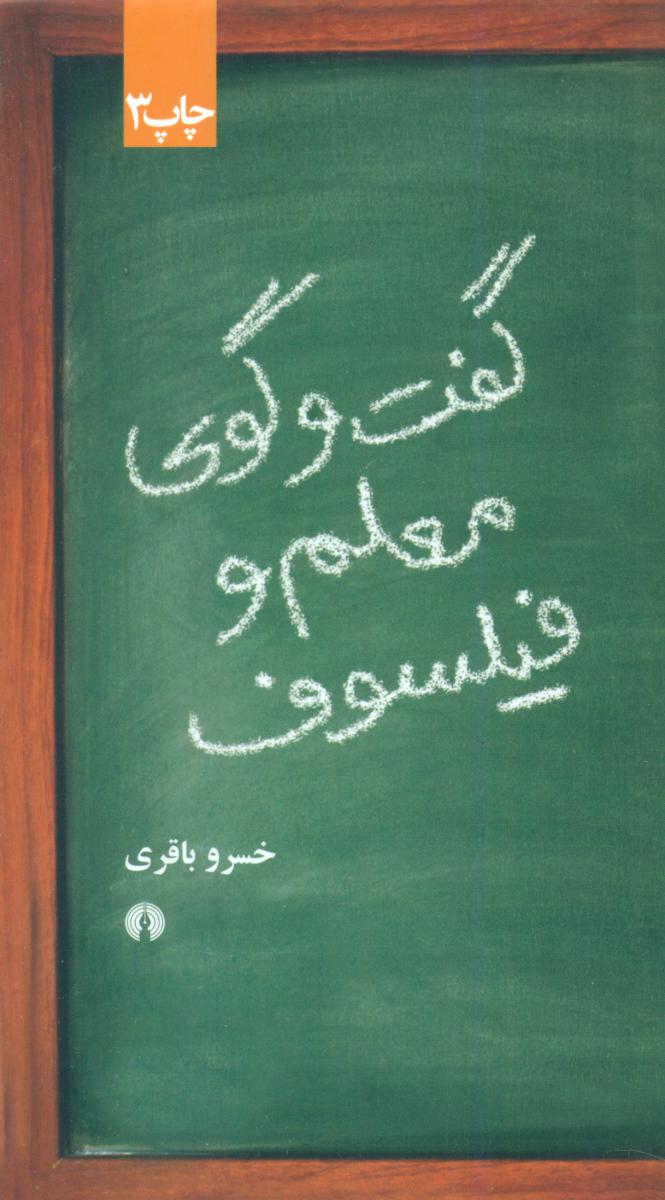 چاپ ۳
گفت و گوی
معلم و
فیلسوف
خسرو باقری